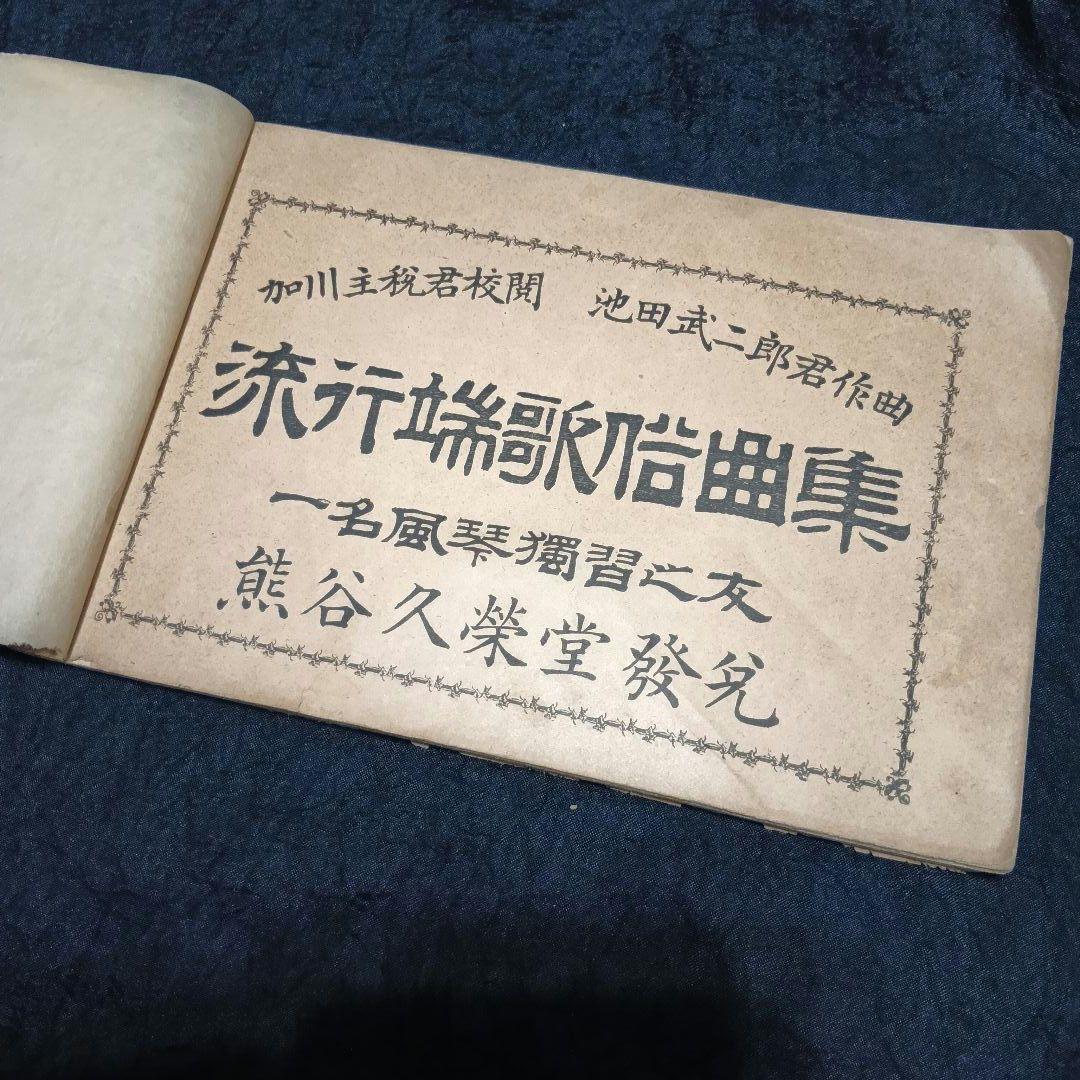 加川主税君校閲　池田武二郎君作曲
流行端歌俗曲集
一名風琴獨習之友
熊谷久榮堂發兌